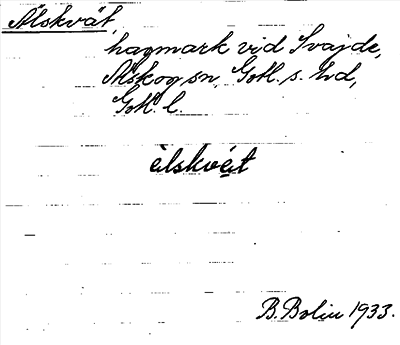 Älskvät,
hagmark vid Svajde,
Alskog sn, Gotl. s. hd,
Gotl. l.
èlskvét
B. Bolin 1933.